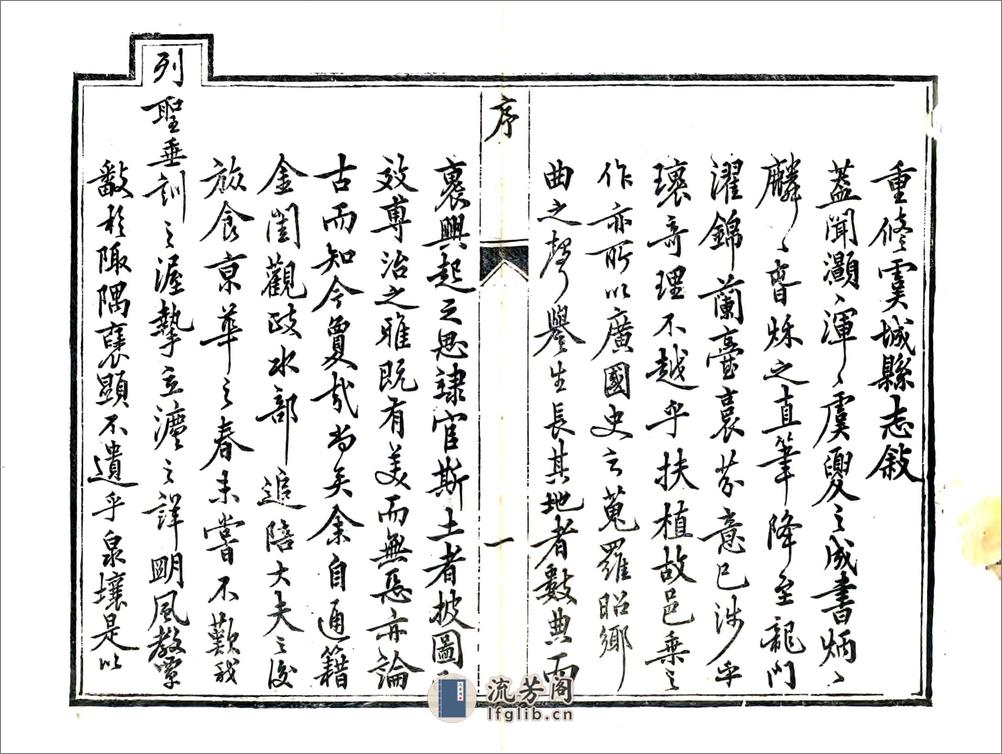 重修虞城縣志敘
蓋聞灝〻渾〻虞夏之成書炳〻
麟〻晉秌之直筆降至龍門
濯錦蘭臺裛芬意已涉乎
瓌奇理不越乎扶植故邑乗之
作亦所以廣國史之蒐羅昭鄉
曲之聲譽生長其地者數典而
序
一
褱興起之思隷官斯土者披圖而
效専治之雅既有美而無惡亦論
古而知今夐哉尚矣余自通籍
金閨觀政水部追陪大夫之後
旅食京華之春未嘗不歎我
列聖垂訓之渥摯立灋之詳明風教覃
敷於陬隅襃顯不遺乎泉壤是以
流芳阁
lfglib.cn